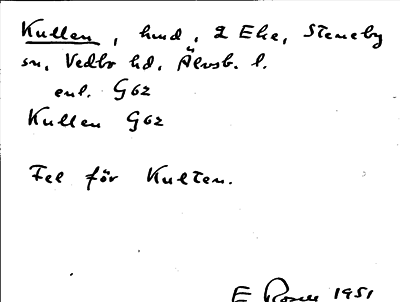 Kullen, hmd, 2 Ehe, Steneby
sn, Vedbo hd, Älvsb. l.
enl. G62
Kullen G62
Fel för Kulten.
E 1951